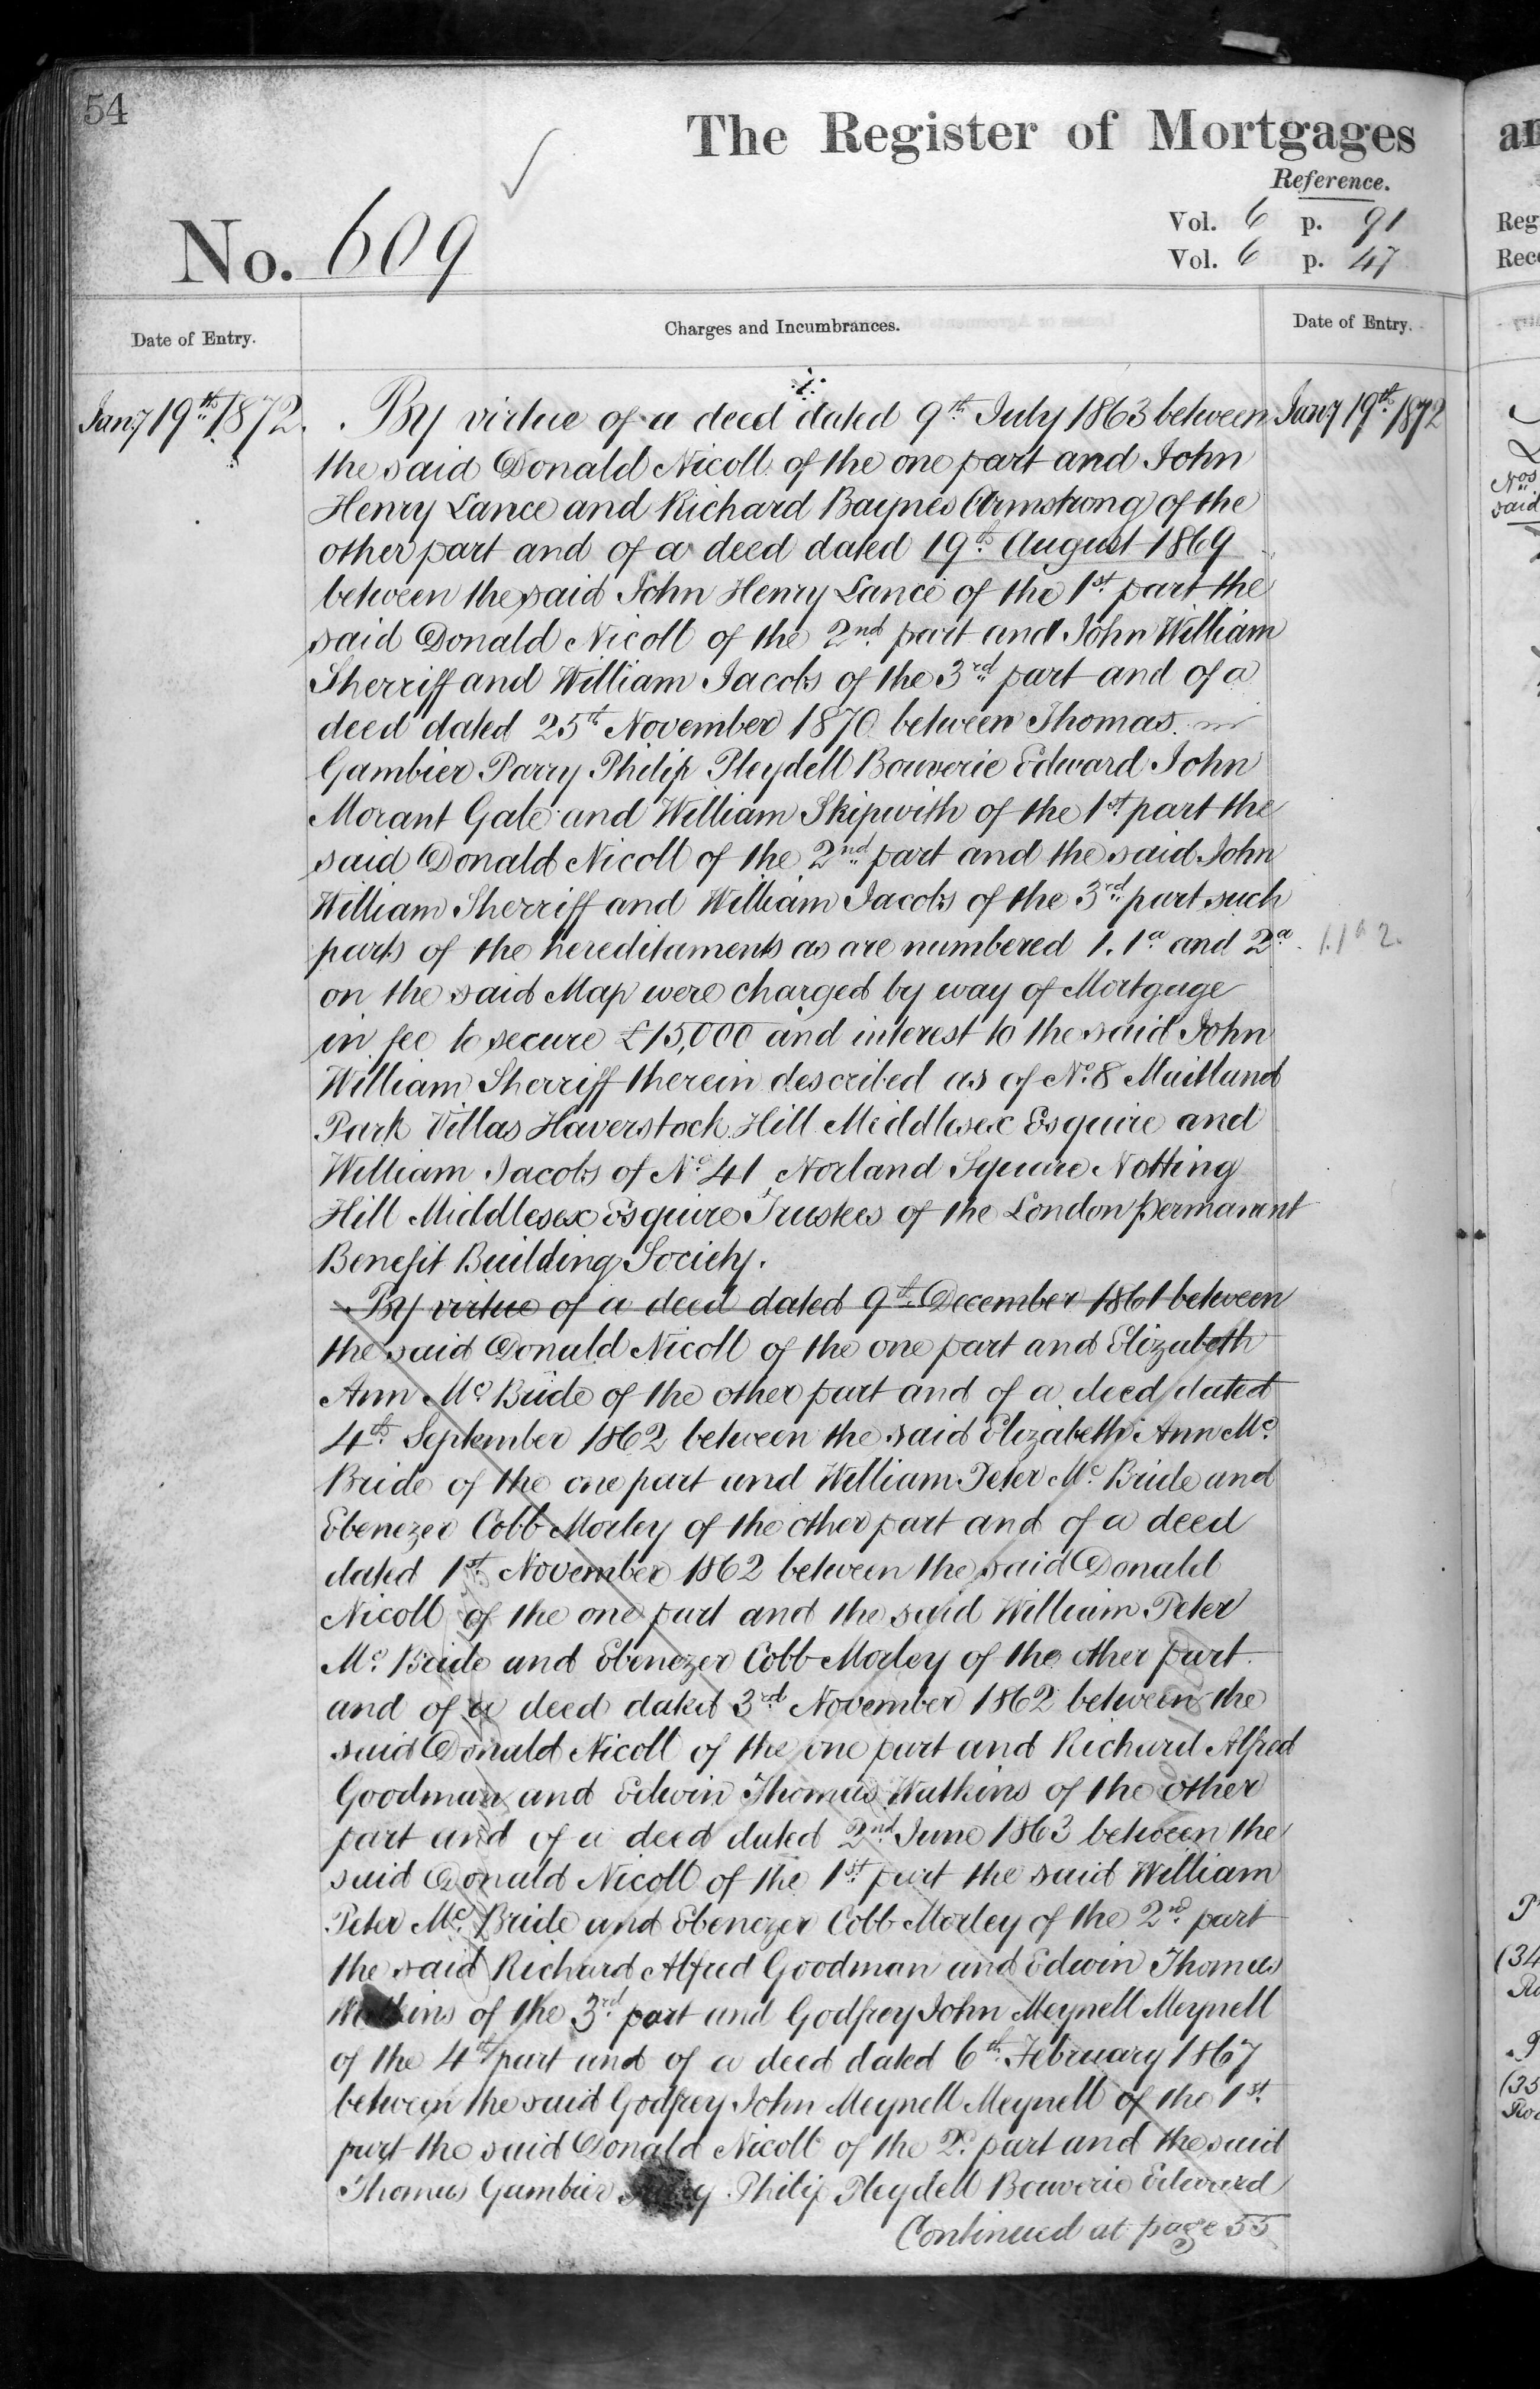 54
The Register of Mortgages
Reference.
No. 609
Vol. 6 p. 91
Vol. 6 p. 47
Date of Entry.
Charges and Incumbrances.
Date of Entry.
Jany 19th 1872.
By virtue of a deed dated 9th July 1863 between
Jany 19th 1872
the said Donald Nicoll of the one part and John
Henry Lance and Richard Baynes Armstrong of the
other part and of a deed dated 19th August 1869
between the said John Henry Lance of the 1st part the
said Donald Nicoll of the 2nd part and John William
Sherriff and William Jacobs of the 3rd part and of a
deed dated 25th November 1870 between Thomas
Gambier Parry Philip Pleydell Bouverie Edward John
Morant Gale and William Skipwith of the 1st part the
said Donald Nicoll of the 2nd part and the said John
William Sherriff and William Jacobs of the 3rd part such
parts of the hereditaments as are numbered 1. 1a and 2a
1. 1a 2.
on the said Map were charged by way of Mortgage
in fee to secure £15,000 and interest to the said John
William Sherriff therein described as of No. 8 Maitland
Park Villas Haverstock Hill Middlesex Esquire and
William Jacobs of No. 41 Norland Square Notting
Hill Middlesex Esquire Trustees of the London permanent
Benefit Building Society.
By virtue of a deed dated 9th December 1861 between
the said Donald Nicoll of the one part and Elizabeth
Ann Mc Bride of the other part and of a deed dated
4th September 1862 between the said Elizabeth Ann Mc
Bride of the one part and William Peter Mc Bride and
Ebenezer Cobb Morley of the other part and of a deed
dated 1st November 1862 between the said Donald
Nicoll of the one part and the said William Peter
Mc Bride and Ebenezer Cobb Morley of the other part
and of a deed dated 3rd November 1862 between the
said Donald Nicoll of the one part and Richard Alfred
Goodman and Edwin Thomas Watkins of the other
part and of a deed dated 2nd June 1863 between the
said Donald Nicoll of the 1st part the said William
Peter Mc Bride and Ebenezer Cobb Morley of the 2nd part
the said Richard Alfred Goodman and Edwin Thomas
Watkins of the 3rd part and Godfrey John Meynell Meynell
of the 4th part and of a deed dated 6th February 1867
between the said Godfrey John Meynell Meynell of the 1st
part the said Donald Nicoll of the 2d part and the said
Thomas Gambier Parry Philip Pleydell Bouverie Edward
Continued at page 55